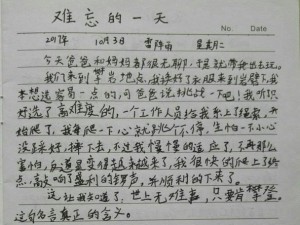 难忘的一天
No. Date
2017年 10月3日 雷阵雨 星期二
今天爸爸和妈妈都很无聊,于是就带我出去玩。
我们来到攀岩地点,我换好了衣服来到岩壁下,我
本想选容易一点的,可爸爸说挑战一下吧!我听只
好选了高难度的,一个工作人员给我系上了绳索,开
始爬了,我每爬一下心就跳个不停,生怕一不小心
没踩好,摔下去,不过我慢慢的适应了,不再那么
害怕,反道是变得越来越来了,我很快的爬上了终
点,敲响了胜利的铃声,并顺利的下来了。
这让我知道了,世上无难事,只要肯攀登。
这句名言真正的含义。